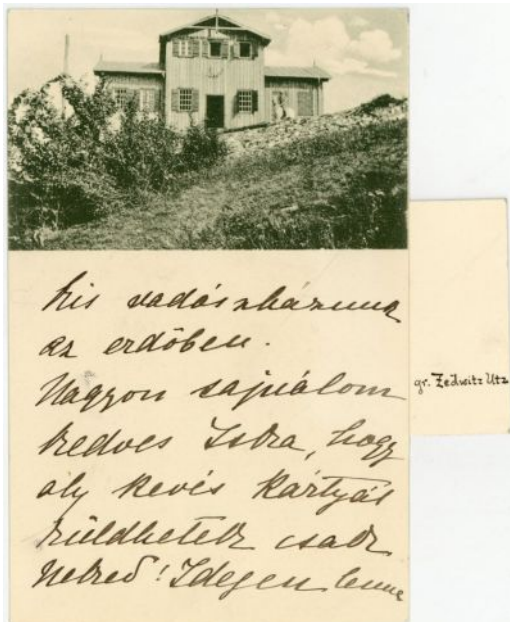 kis vadászházunk
az erdőben.
Nagyon sajnálom
kedves Iska, hogy
oly kevés kártyát
küldhetek csak
Neked! Idegen lenne
gr. Zedwitz Utz